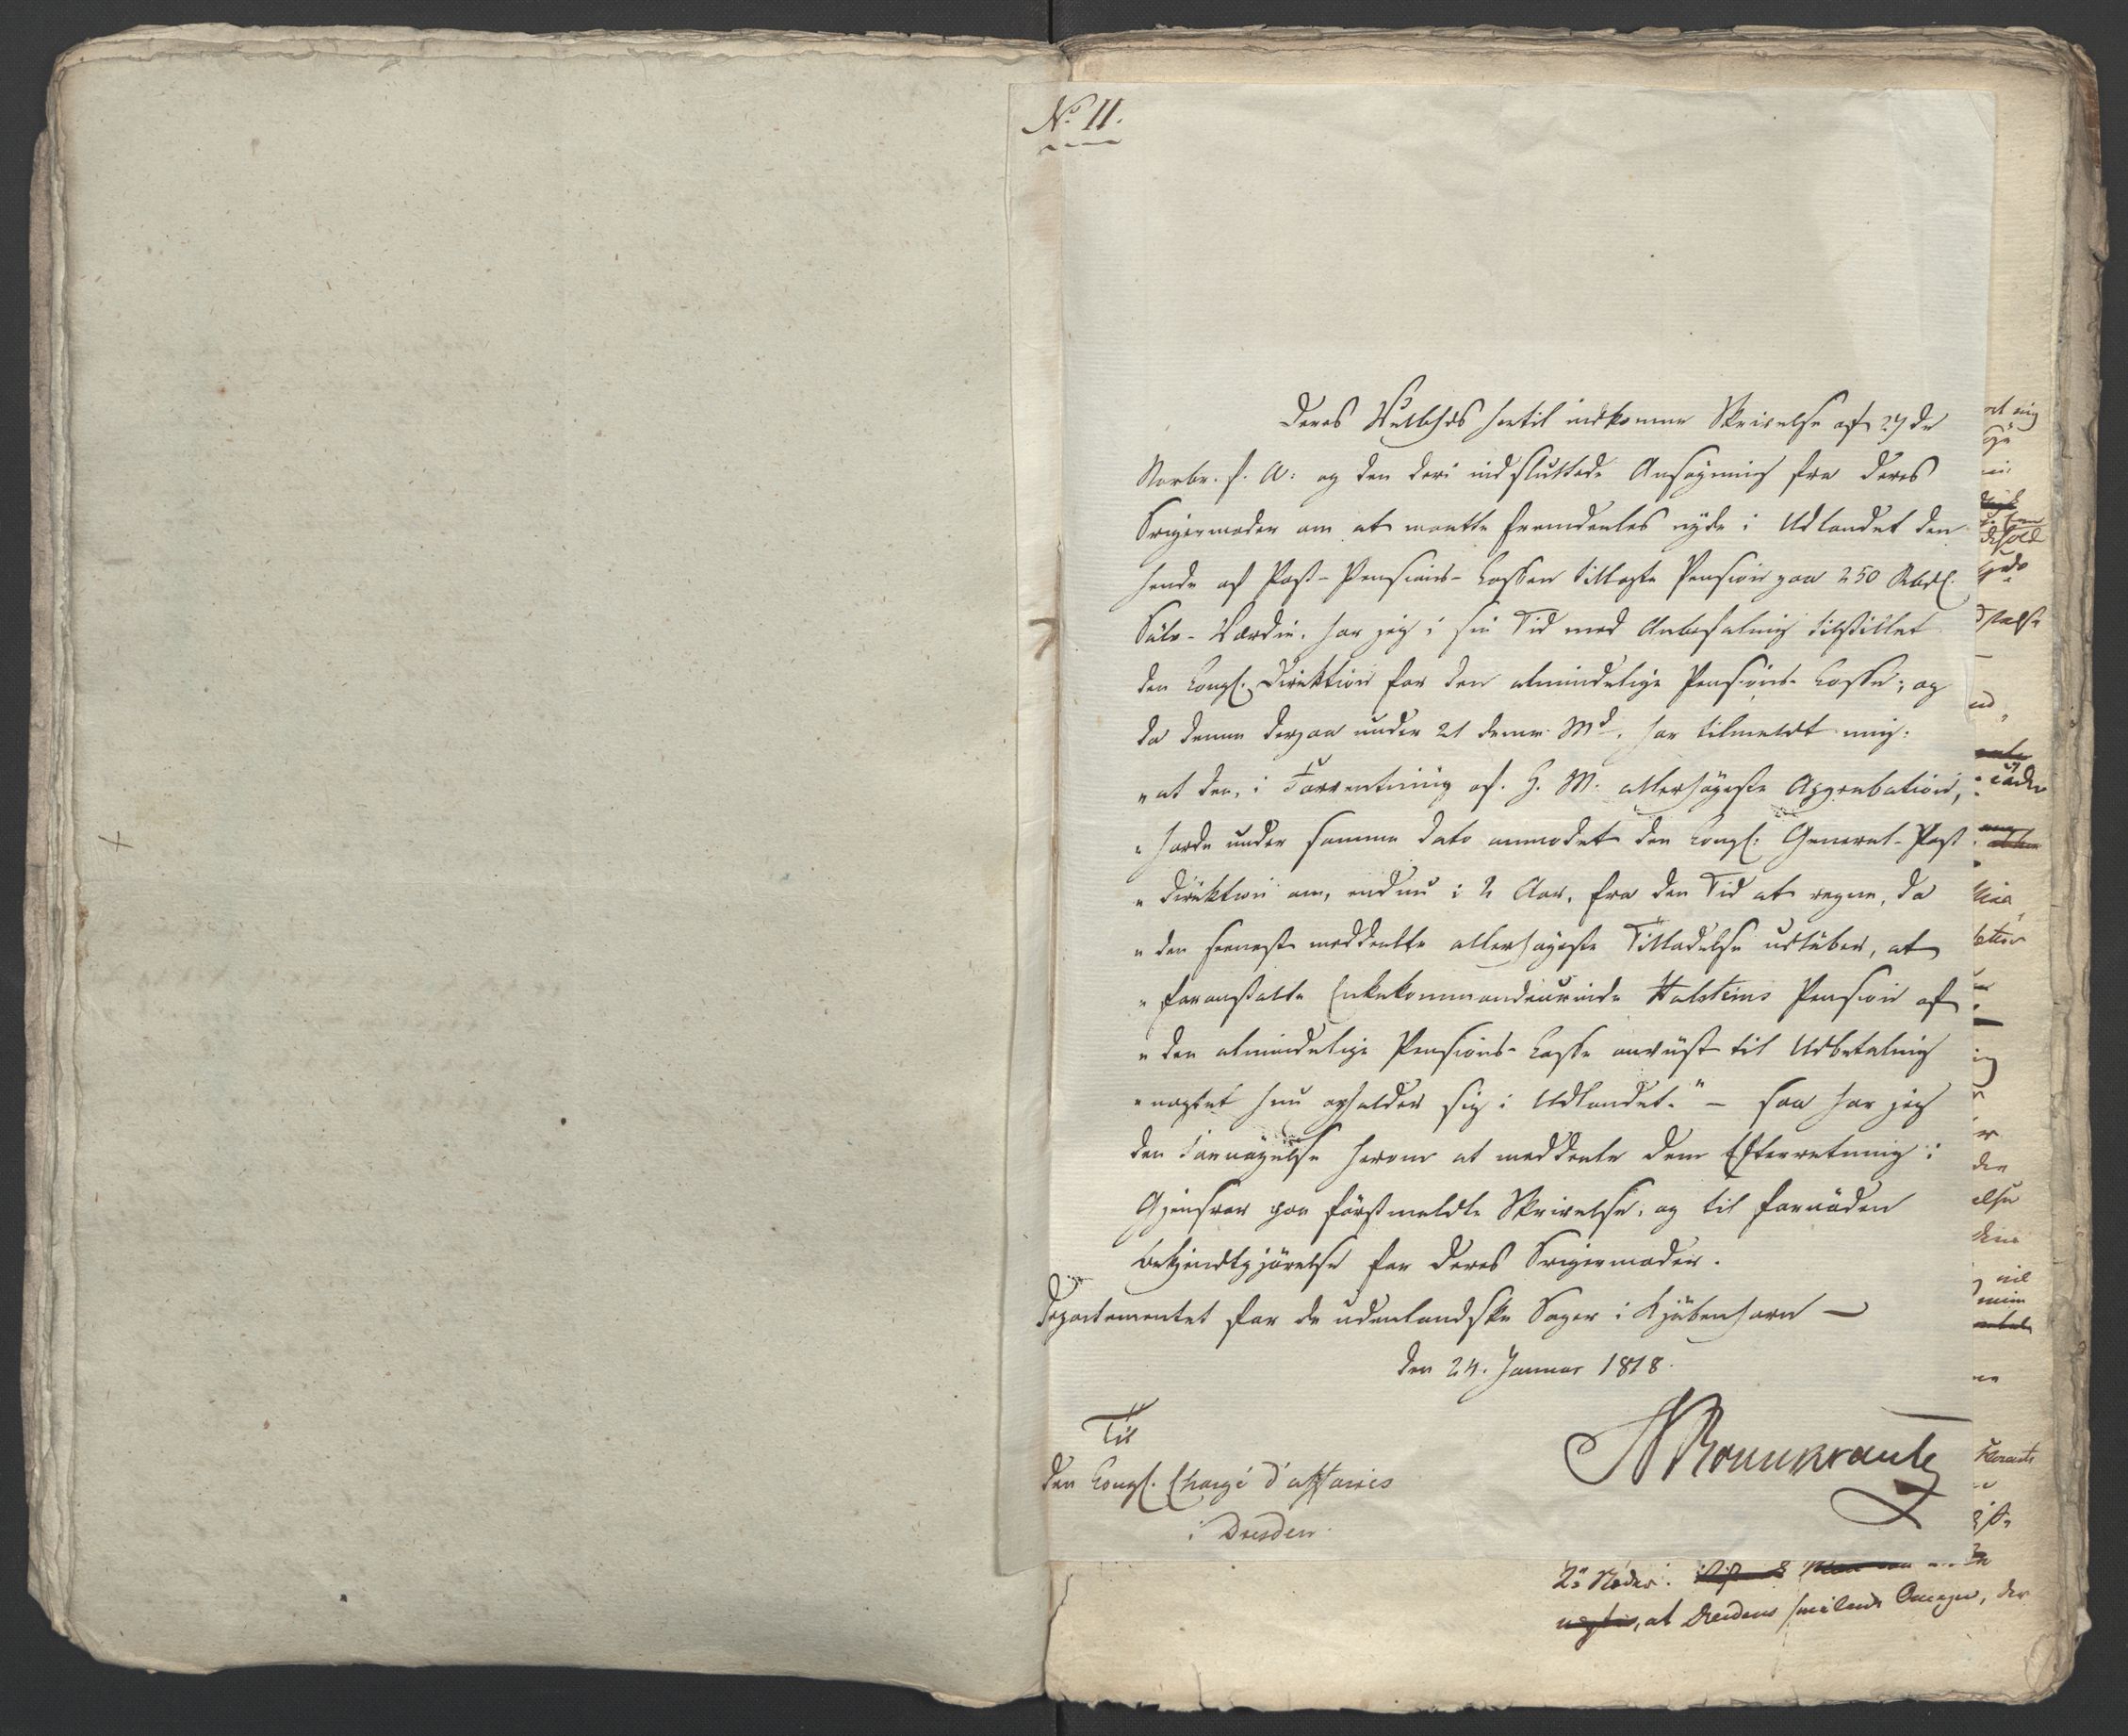 No. 11.
Deres Velbhds hertil indkomne Skrivelse af 27de
Novbr. f. A: og den deri indsluttede Ansøgning fra Deres
Svigermoder om at maatte fremdeeles nyde i Udlandet den
hende af Post-Pensions-Cassen tillagte Pension paa 250 Rbdl.
Sølv-Værdie, har jeg i sin Tid med Anbefaling tilstillet
den Kongl. Direktion for den almindelige Pensions-Casse; og
da denne derpaa under 21 denne Md. har tilmeldt mig:
"at den, i Forventning af H. M. allerhøyeste Approbation,
"havde under samme Dato anmodet den Kongl: General-Post
"Direktion om, endnu i 2 Aar, fra den Tid at regne, da
"den seeneste meddeelte allerhøyeste Tilladelse udløber, at
"foranstalte Enkekommandeurinde Holsteins Pension af
"den almindelige Pensions-Casse anviist til Udbetaling
"uagtet hun opholder sig i Udlandet." – saa har jeg
den Fornøyelse herom at meddeele Dem Efterretning i
Gjensvar paa førstmeldte Skrivelse, og til fornøden
Bekjendtgjørelse for Deres Svigermoder.
Departementet for de udenlandske Sager i Kjøbenhavn –
den 24. Januar 1818.
N Rosenkrantz
Til
den Kongl. Chargé d'affaires
i Dresden.
at Dresdens smilende Omegn, der